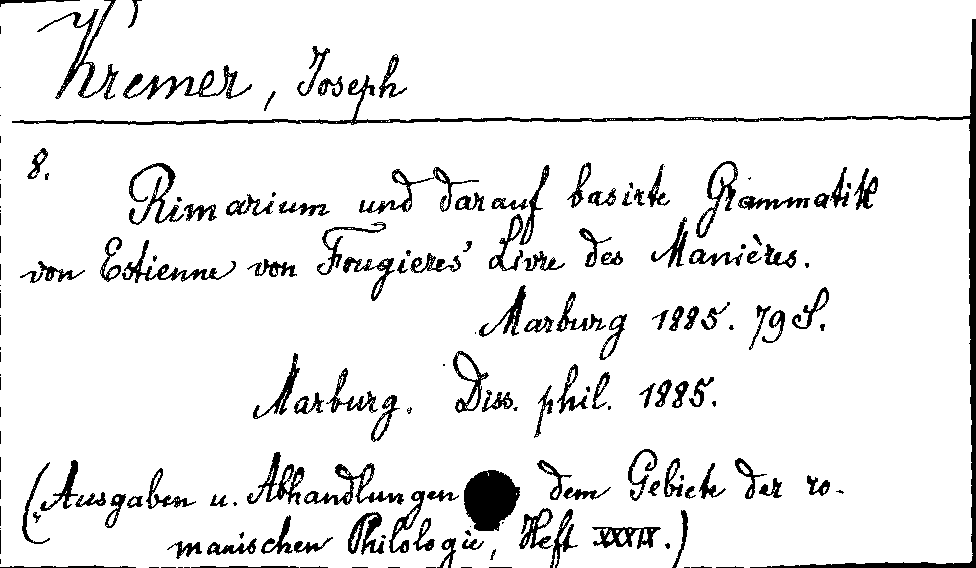 Kremer, Joseph
8.
Rimarium und darauf basirte Grammatik
von Estienne von Fougieres' Livre des Manières.
Marburg 1885. 79 S.
Marburg. Diss. phil. 1885.
(Ausgaben u. Abhandlungen dem Gebiete der ro-
manischen Philologie, Heft XXXIX.)